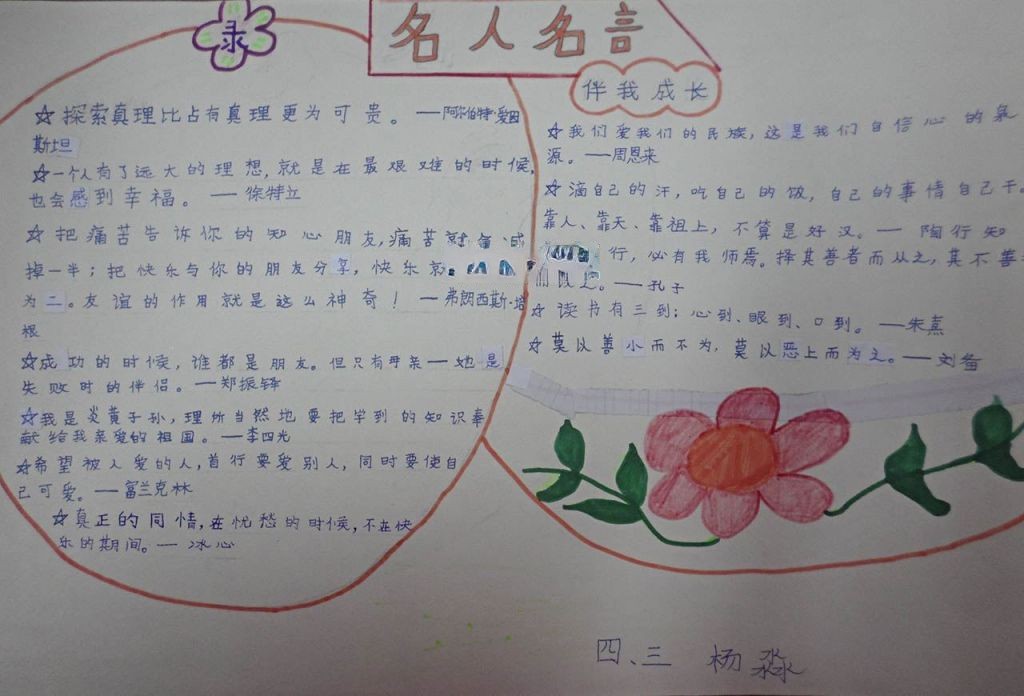 录
名人名言
伴我成长
☆探索真理比占有真理更为可贵。——阿尔伯特·爱因
斯坦
☆一个人有了远大的理想,就是在最艰难的时候,
也会感到幸福。——徐特立
☆把痛苦告诉你的知心朋友,痛苦就会减
掉一半;把快乐与你的朋友分享,快乐就
为二。友谊的作用就是这么神奇!——弗朗西斯·培
根
☆成功的时候,谁都是朋友。但只有母亲——她是
失败时的伴侣。——郑振铎
☆我是炎黄子孙,理所当然地要把学到的知识奉
献给我亲爱的祖国。——李四光
☆希望被人爱的人,首行要爱别人,同时要使自
己可爱。——富兰克林
☆真正的同情,在忧愁的时候,不在快
乐的期间。——冰心
☆我们爱我们的民族,这是我们自信心的泉
源。——周恩来
☆滴自己的汗,吃自己的饭,自己的事情自己干。
靠人、靠天、靠祖上,不算是好汉。——陶行知
行,必有我师焉。择其善者而从之,其不善
——孔子
☆读书有三到:心到、眼到、口到。——朱熹
☆莫以善小而不为,莫以恶上而为之。——刘备
四、三 杨淼